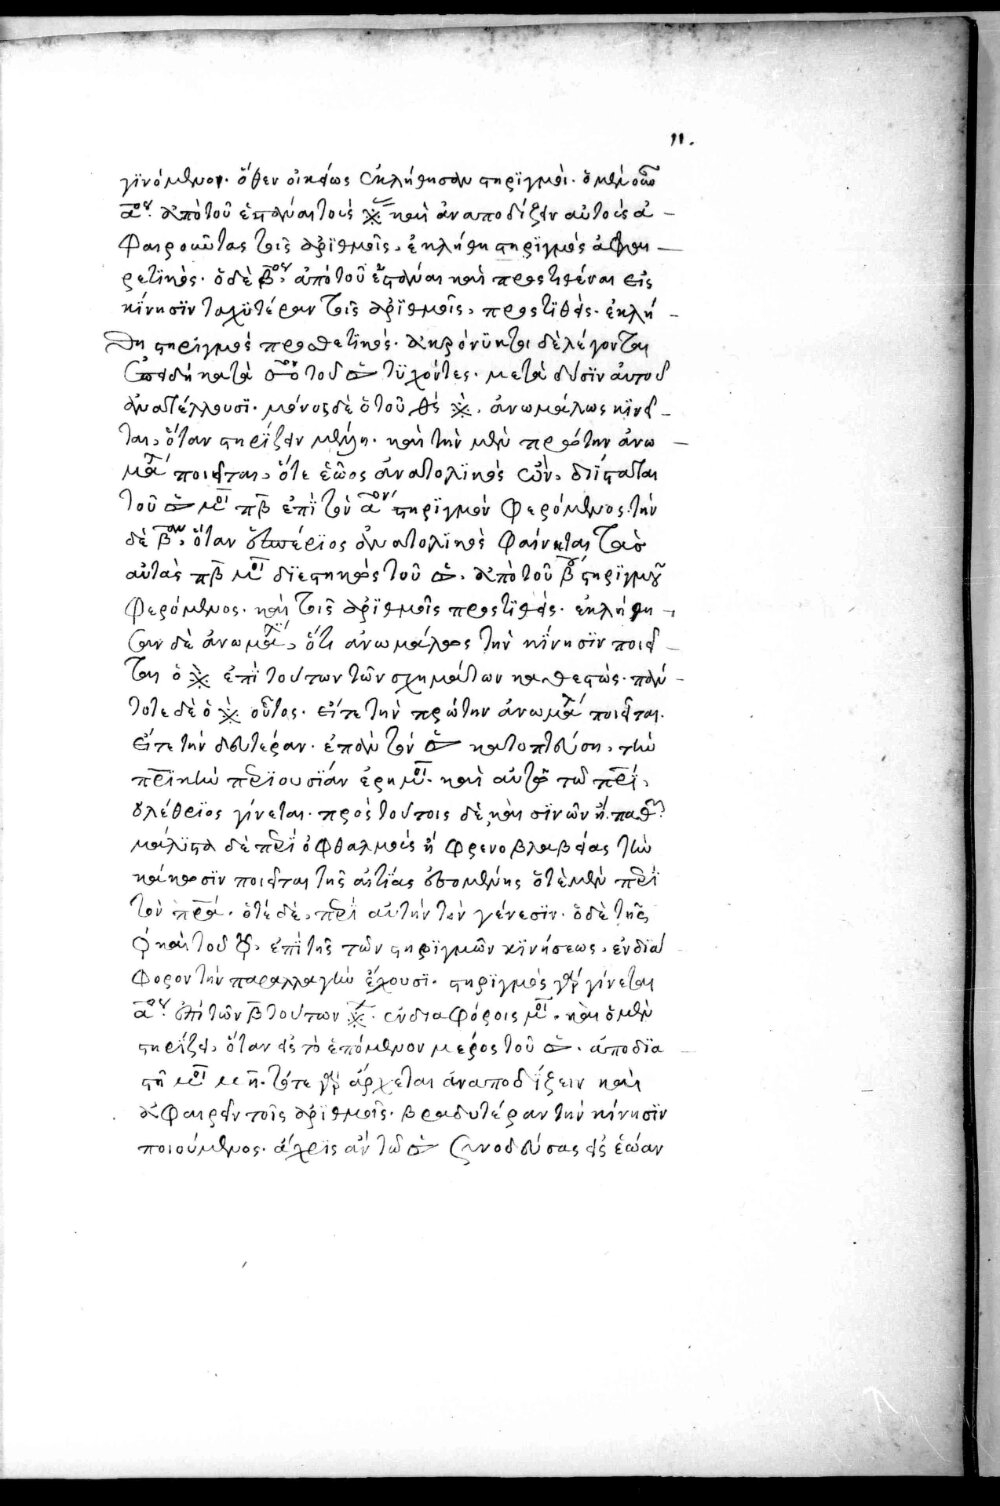 11.
γϊνόμενον. ὅθεν οἰκείως ἐκλήθησαν στηρϊγμοί. ὁ μὲν οὖν
ᾱ^ος. ἀπὸ τοῦ ἐπάναι τοὺς καὶ ἀναποδίζειν αὐτοὺς ἀ –
φαιροῦντας τοῖς ἀρϊθμοῖς, ἐκλήθη στηρϊγμὸς ἀφαι –
ρετϊκὸς. ὁ δὲ β^ος, ἀπὸ τοῦ καὶ προστιθέναι εἰς
κίνησϊν ταχϋτέραν τοῖς ἀρϊθμοῖς, προστϊθεὶς. ἐκλή –
θη στηρϊγμὸς προσθετϊκὸς. ἀκρόνϋκτοι δὲ λέγονται
ἐπειδὴ κατὰ τοῦ τϋχόντες. μετὰ δύσϊν αὐτοῦ
ἀνατέλλουσι. μόνος δὲ ὁ τοῦ ἀνωμάλως κϊνεῖ –
ται, ὅταν στηρίζειν μέλλη. καὶ τὴν μὲν πρώτην ἀνω –
μα^λ ποιεῖται, ὅτε ἑῶος ἀνατολϊκὸς ὢν, διΐσταται
τοῦ μ^οι π̄β̄ ἐπὶ τὸν ᾱ^ον στηρϊγμὸν φερόμενος. τὴν
δὲ β^αν, ὅταν ἑσπέρϊος ἀνατολϊκὸς φαίνηται τὰς
αὐτὰς π̄β̄ μ^οι δϊεστηκὼς τοῦ. ἀπὸ τοῦ β^ου στηρϊγμοῦ
φερόμενος. καὶ τοῖς ἀρϊθμοῖς προστϊθεὶς. ἐκλήθη –
σαν δὲ ἀνωμα^λ, ὅτι ἀνωμάλως τὴν κΐνησϊν ποιεῖ –
ται ὁ ἐπὶ τούτων τῶν σχημάτων καθεστώς. πάν –
τοτε δὲ ὁ οὗτος. εἴτε τὴν πρώτην ἀνωμα^λ ποιεῖται.
εἴτε τὴν δευτέραν. ἐπὰν τὸν κατοπτεύση, τὴν
πρϊκὴν πρϊουσίαν ἐρημ^οι. καὶ αὐτῷ τῷ πρῒ,
ὀλέθρϊος γίνεται. πρὸς τούτοις δὲ καὶ σϊνῶν ἢ παθ^ῶν
μάλϊστα δὲ πρῒ ὀφθαλμοὺς ἢ φρενοβλαβείας τὴν
κάκωσϊν ποιεῖται τῆς αἰτίας ἑπομένης ὁτὲ μὲν πρῒ
τὸν πρ̄ᾱ. ὁτὲ δὲ, πρῒ αὐτὴν τὴν γένεσϊν. ὁ δὲ τῆς
♀ καὶ τοῦ ☿, ἐπὶ τῆς τῶν στηρϊγμῶν κϊνήσεως, ἐνδιά –
φορον τὴν παραλλαγὴν ἔχουσϊ. στηρϊγμὸς γὰρ γίνεται
ᾱ^ος. ἐπὶ τῶν β̄ τούτων. ἐν διαφόροις μ^οι. καὶ ὁ μὲν
στηρίζει, ὅταν εἰς τὸ ἑπόμενον μέρος τοῦ. ἀποδϊα –
στῆ μ^οι μ̄η̄. τότε γὰρ ἄρχεται ἀναποδΐζειν καὶ
ἀφαιρεῖν τοῖς ἀρϊθμοῖς. βραδυτέραν τὴν κίνησϊν
ποιούμενος. ἄχρϊς ἂν τῷ συνοδεύσας εἰς ἑώαν